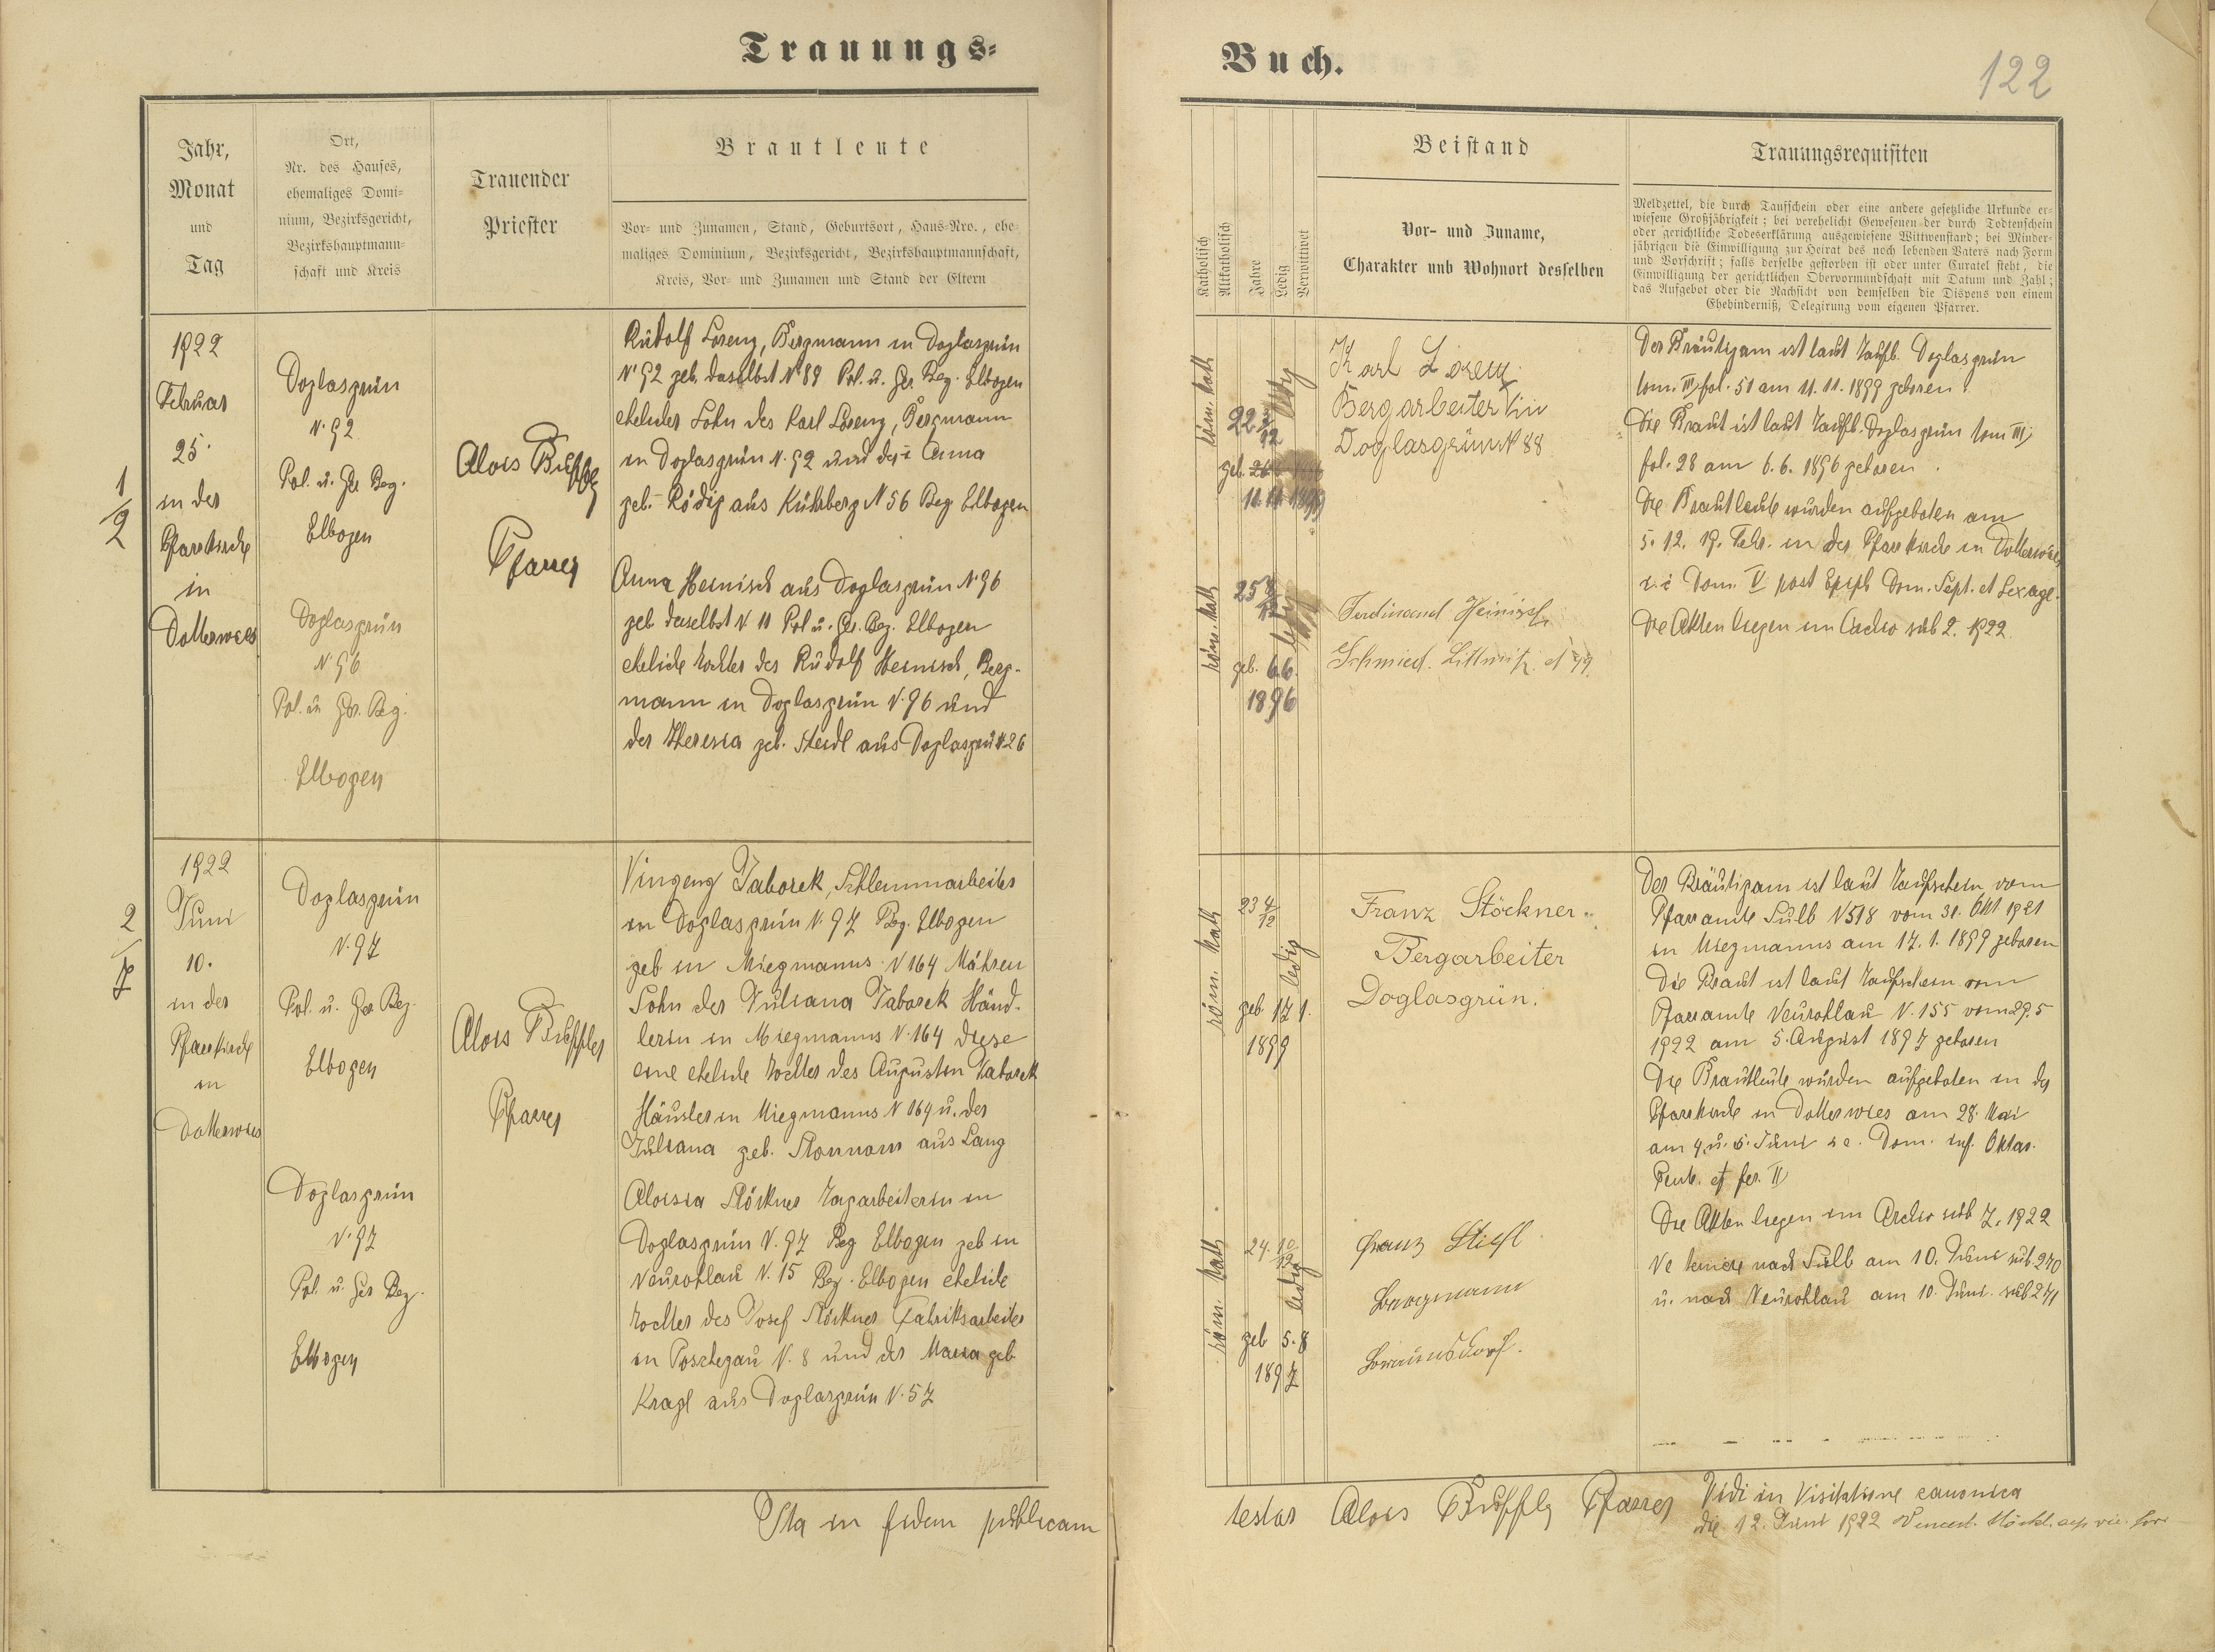 Trauungs-
Buch.
122
Jahr,
Monat
und
Tag
Ort,
Nr. des Hauses,
ehemaliges Domi-
nium, Bezirksgericht,
Bezirkshauptmann-
schaft und Kreis
Trauender
Priester
Brautleute
Vor- und Zunamen, Stand, Geburtsort, Haus-Nro., ehe-
maliges Dominium, Bezirksgericht, Bezirkshauptmannschaft,
Kreis, Vor- und Zunamen und Stand der Eltern
Katholisch
Altkatholisch
Jahre
Ledig
Verwittwet
Beistand
Vor- und Zuname,
Charakter und Wohnort desselben
Trauungsrequisiten
Meldzettel, die durch Taufschein oder eine andere gesetzliche Urkunde er-
wiesene Großjährigkeit; bei verehelicht Gewesenen der durch Todtenschein
oder gerichtliche Todeserklärung ausgewiesene Wittwenstand; bei Minder-
jährigen die Einwilligung zur Heirat des noch lebenden Vaters nach Form
und Vorschrift; falls derselbe gestorben ist oder unter Curatel steht, die
Einwilligung der gerichtlichen Obervormundschaft mit Datum und Zahl;
das Aufgebot oder die Nachsicht von demselben die Dispens von einem
Ehehinderniß, Delegirung vom eigenen Pfarrer.
1/2
1922
Februar
25.
in der
Pfarrkirche
in
Dotterwies
Doglasgrün
N. 92
Pol. u. Ger Bez.
Elbogen
Doglasgrün
N. 96
Pol. u Ger. Bez.
Elbogen
Alois Buffler
Pfarrer
Rudolf Lorenz, Bergmann in Doglasgrün
N. 92 geb. daselbst N. 89 Pol. u. Ger. Bez. Elbogen
ehelicher Sohn des Karl Lorenz, Bergmann
in Doglasgrün N. 92 und der Anna
geb. Rödig aus Kühberg N 56 Bez Elbogen
Anna Heinisch aus Doglasgrün N. 96
geb daselbst N 11 Pol u. Ger. Bez. Elbogen
eheliche Tochter des Rudolf Heinisch, Berg-
mann in Doglasgrün N. 96 und
der Theresia geb. Steidl aus Doglasgrün 26
röm. kath
22 3/12
ledig
geb.
11.11.1899
röm. kath
25 8/12
ledig
geb. 6.6.
1896
Karl Lorenz
Bergarbeiter in
Doglasgrün N 88
Ferdinand Heinisch
Schmied. Littmitz N 99.
Der Bräutigam ist laut Taufb. Doglasgrün
tom. III fol. 51 am 11.11.1899 geboren.
Die Braut ist laut Taufb. Doglasgrün tom III
fol. 28 am 6.6.1896 geboren.
Die Brautleute wurden aufgeboten am
5. 12. 19. Febr. in der Pfarrkirche in Dotterwies
i. e Dom. V post Epiph Dom. Sept. et Sexage.
Die Akten liegen im Archiv sub 2. 1922.
2/7
1922
Juni
10.
in der
Pfarrkirche
in
Dotterwies
Doglasgrün
N. 97
Pol. u. Ger Bez.
Elbogen
Doglasgrün
N. 97
Pol. u. Ger Bez.
Elbogen
Alois Buffler
Pfarrer
Vinzenz Taborek, Schlemmarbeiter
in Doglasgrün N. 97 Bez. Elbogen
geb in Miegmanns N 164 Mähren
Sohn der Juliana Taborek Händ-
lerin in Miegmanns N. 164 diese
eine eheliche Tochter des Augustin Taborek
Häusler in Miegmanns N 164 u. der
Juliana geb. aus Lang
Aloisia Stöckner Tagarbeiterin in
Doglasgrün N. 97 Bez Elbogen geb in
Neurohlau N. 15 Bez. Elbogen eheliche
Tochter des Josef Stöckner Fabriksarbeiter
in Poschegau N. 8 und der Maria geb
Kragl aus Doglasgrün N. 57
röm. kath
23 4/12
ledig
geb. 17 1.
1899
röm. kath
24. 10/12
ledig
geb 5.8
1897
Franz Stöckner.
Bergarbeiter
Doglasgrün.
Franz Stiefl
Bergmann
Braunsdorf.
Der Bräutigam ist laut Taufschein vom
Pfarramte Sulb N 518 vom 31. Okt 1921
in Miegmanns am 17. 1. 1899 geboren
Die Braut ist laut Taufschein vom
Pfarramte Neurohlau N. 155 vom 29. 5
1922 am 5. August 1897 geboren
Die Brautleute wurden aufgeboten in der
Pfarrkirche in Dotterwies am 28. Mai
am 4. u. 5. Juni i e. Dom. inf. Oktav.
Pent. et fer. II
Die Akten liegen im Archiv sub 7. 1922
Ne temere nach Sulb am 10. Juni sub 270
u. nach Neurohlau am 10. Juni. sub 271
Ita in fidem publicam
testor Alois Buffler Pfarrer
Vidi in Visitatione canonica
die 12. Juni 1922